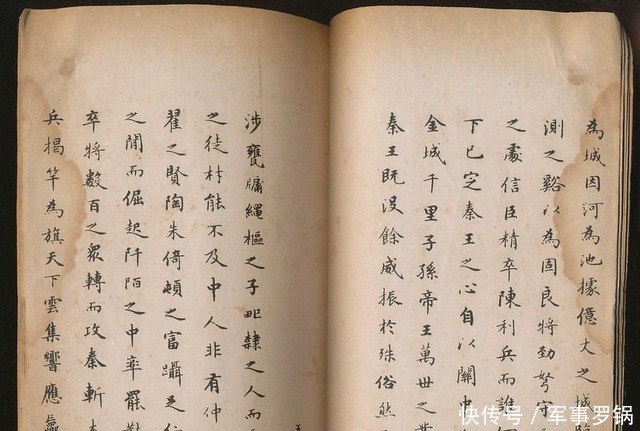 為城因河為池據億丈之城臨
測之谿以為固良將勁弩守
之處信臣精卒陳利兵而誰
下已定秦王之心自以關中
金城千里子孫帝王萬世之業
秦王既沒餘威振於殊俗然
涉甕牖繩樞之子甿隸之人而
之徒材能不及中人非有仲
翟之賢陶朱倚頓之富躡足行
之間而倔起阡陌之中率罷
卒將數百之眾轉而攻秦斬
兵揭竿為旗天下雲集響應
快传号／军事罗锅